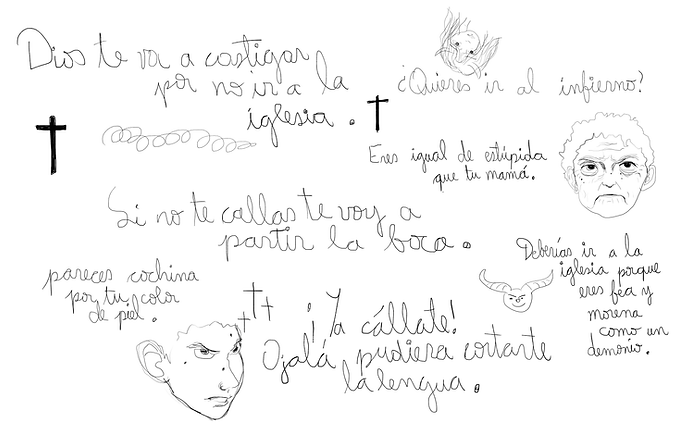 Dios te va a castigar
por no ir a la
iglesia.
¿Quieres ir al infierno?
Eres igual de estúpida
que tu mamá.
Si no te callas te voy a
partir la boca.
Deberías ir a la
iglesia porque
eres fea y
morena
como un
demonio.
pareces cochina
por tu color
de piel.
¡Ya cállate!
Ojalá pudiera cortarte
la lengua.